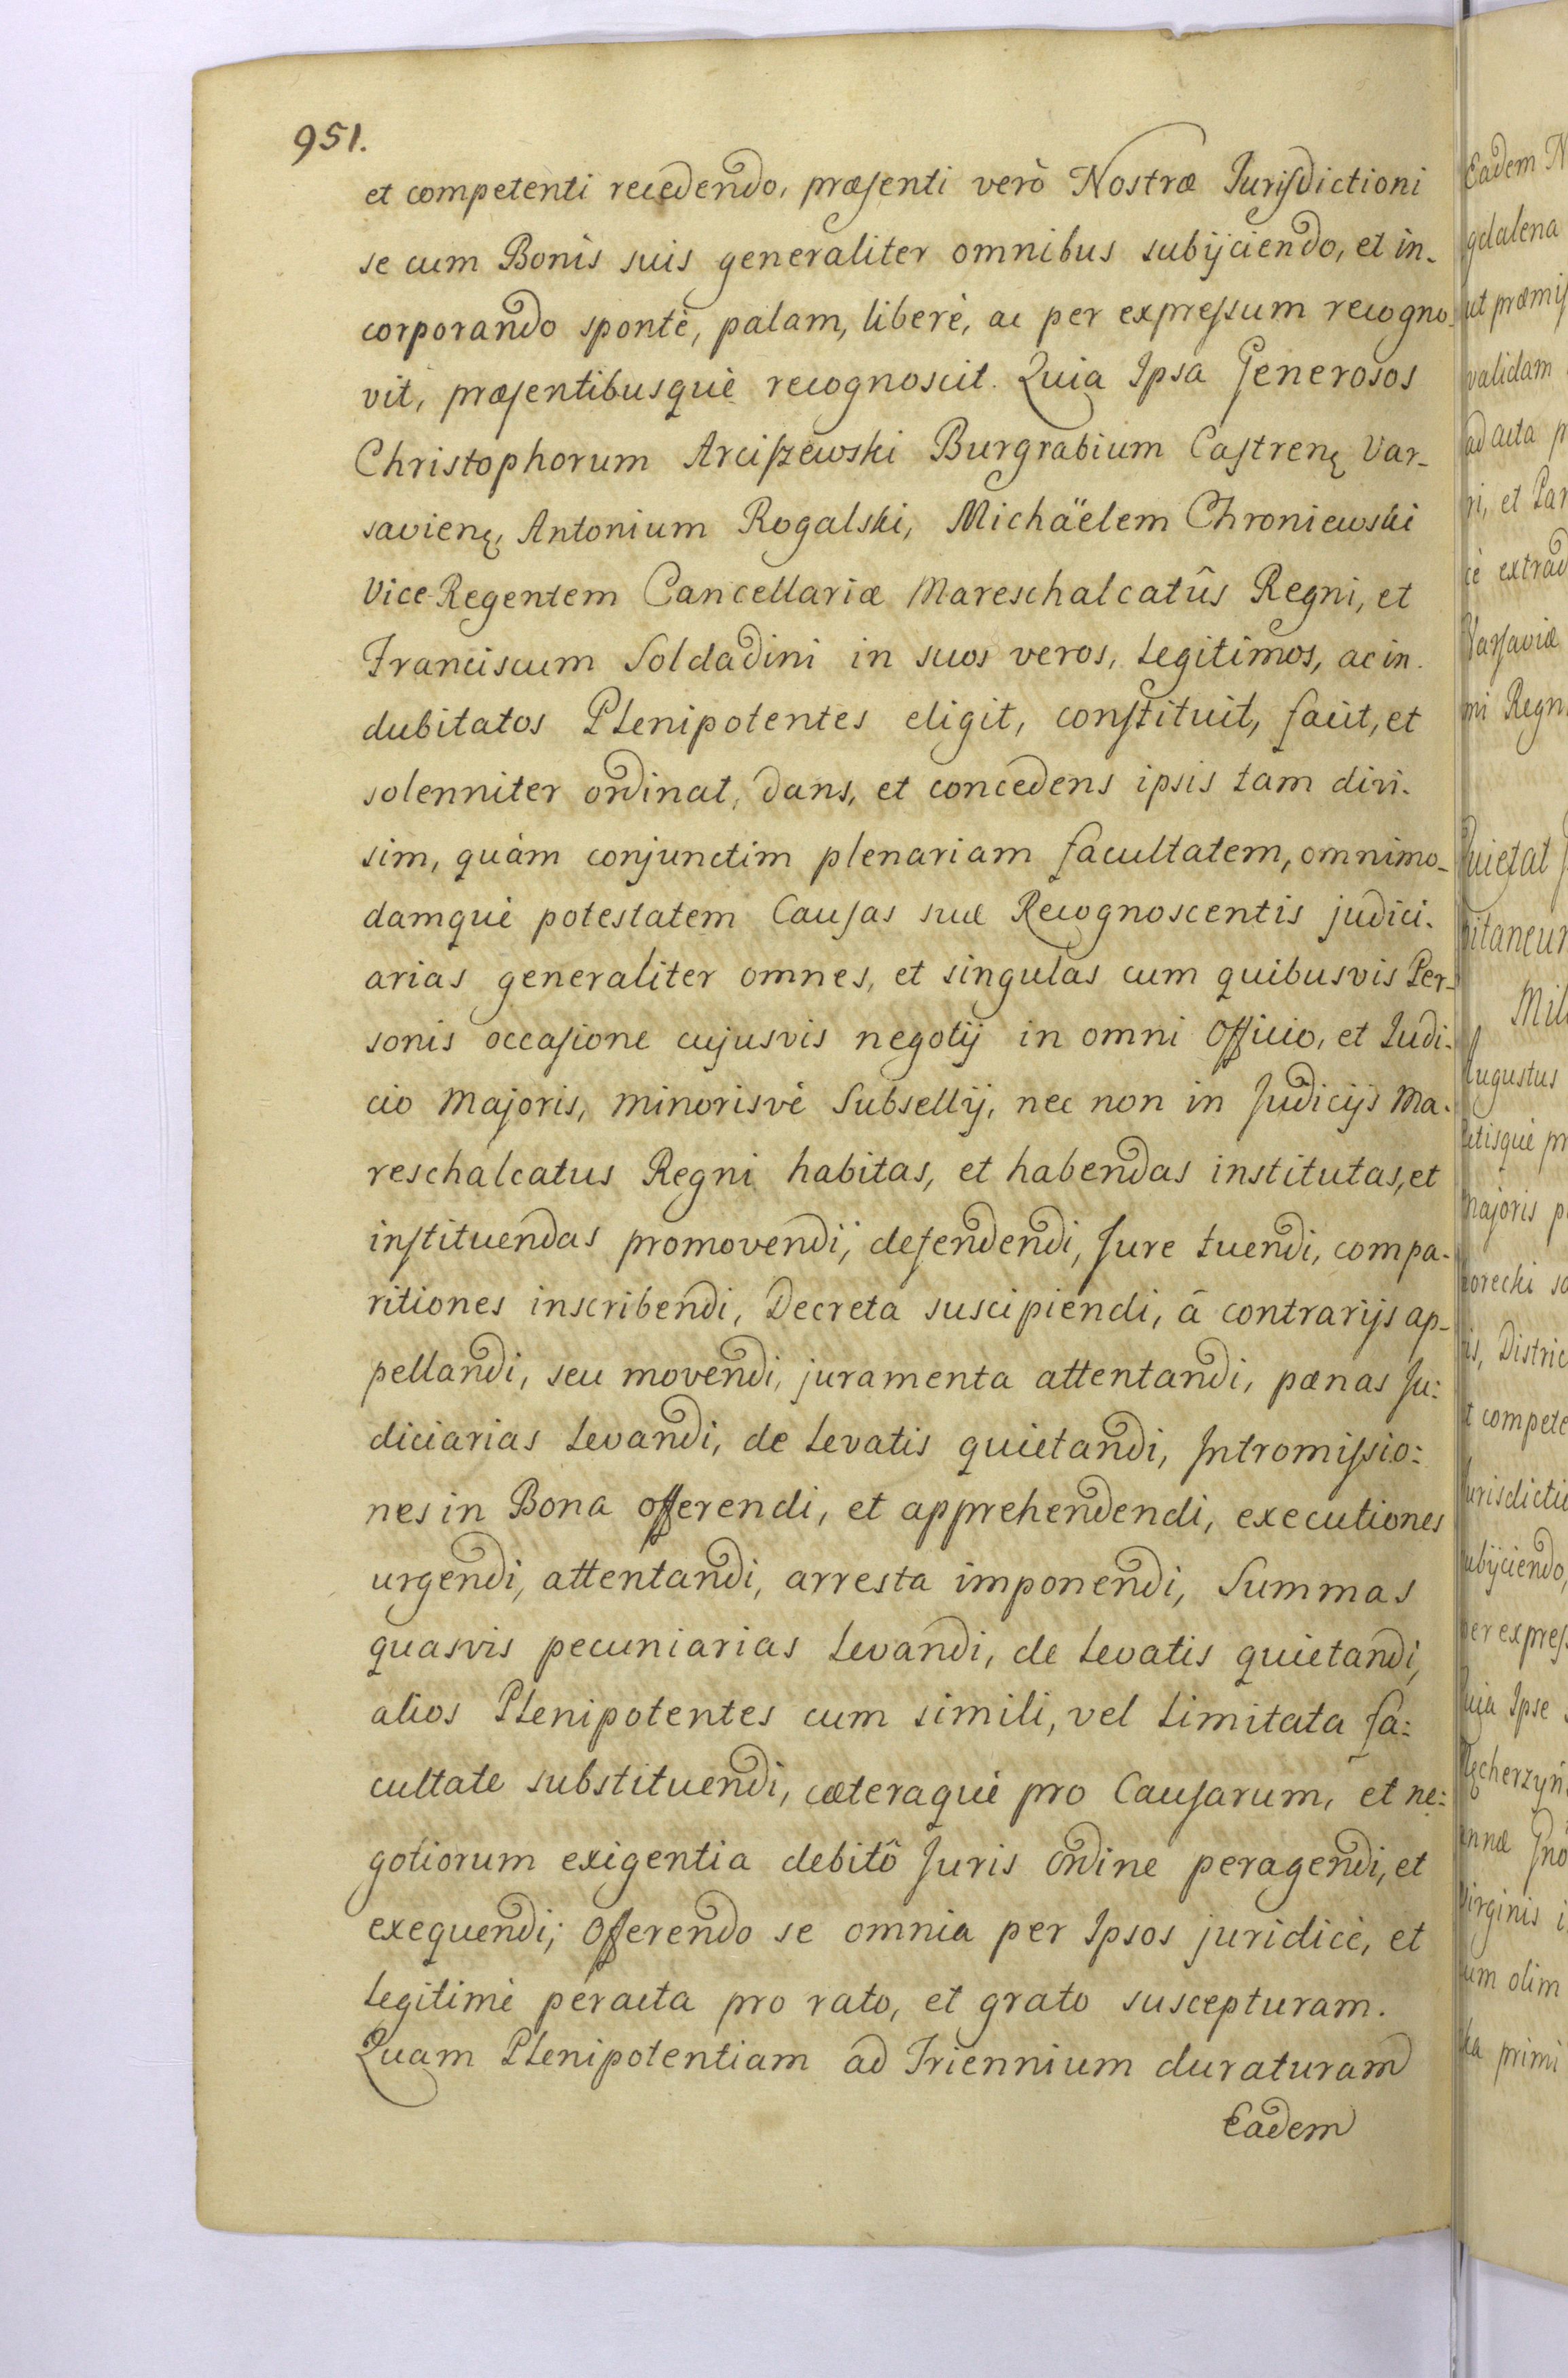 951.
et competenti recedendo, præsenti verò Nostræ Jurisdictioni
se cum Bonis suis generaliter omnibus subijciendo, et in-
corporando spontè, palam, liberè, ac per expressum recogno-
vit, præsentibusquè recognoscit. Quia Ipsa Generosos
Christophorum Arciszewski Burgrabium Castrenę Var-
savienę, Antonium Rogalski, Michäelem Chroniewski
Vice-Regentem Cancellariæ Mareschalcatûs Regni, et
Franciscum Soldadini in suos veros, legitimos, ac in-
dubitatos Plenipotentes eligit, constituit, facit, et
solenniter ordinat, dans, et concedens ipsis tam divi-
sim, quàm conjunctim plenariam facultatem, omnimo-
damquè potestatem Causas suæ Recognoscentis judici-
arias generaliter omnes, et singulas cum quibusvis Per-
sonis occasione cujusvis negotij in omni Officio, et Judi-
cio Majoris, minorisvè Subsellij, nec non in Judicijs Ma-
reschalcatus Regni habitas, et habendas institutas, et
instituendas promovendi, defendendi, Jure tuendi, compa-
ritiones inscribendi, Decreta suscipiendi, â contrarijs ap-
pellandi, seu movendi, juramenta attentandi, pænas Ju:
diciarias levandi, de levatis quietandi, Intromissio:
nes in Bona offerendi, et apprehendendi, executiones
urgendi, attentandi, arresta imponendi, Summas
quasvis pecuniarias levandi, de levatis quietandi,
alios Plenipotentes cum simili, vel limitata fa:
cultate substituendi, cæteraquè pro Causarum, et ne:
gotiorum exigentia debitô Juris Ordine peragendi, et
exequendi; Offerendo se omnia per Ipsos juridicè, et
legitimè peracta pro rato, et grato suscepturam.
Quam Plenipotentiam ad Triennium duraturam
Eadem
Eadem
gdalena
ut præmis
validam
ad acta
ri, et
cè extrad
Varsaviæ
mi Regn
Quietat
pitaneum
Augustus
letisquè
Majoris
orecki
is, Distric
t compete
Jurisdictio
subijciendo,
per express
Quia Ipse
ęcherzyń
annæ
Virginis
um olim
primi